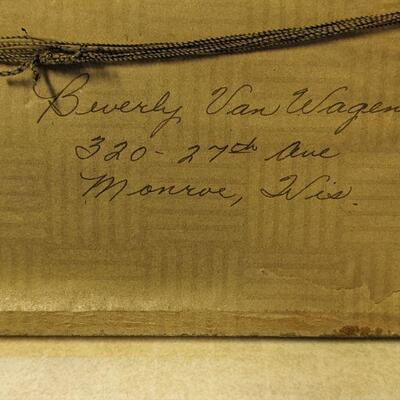 Beverly Van Wagen
320 - 27th Ave
Monroe, Wis.